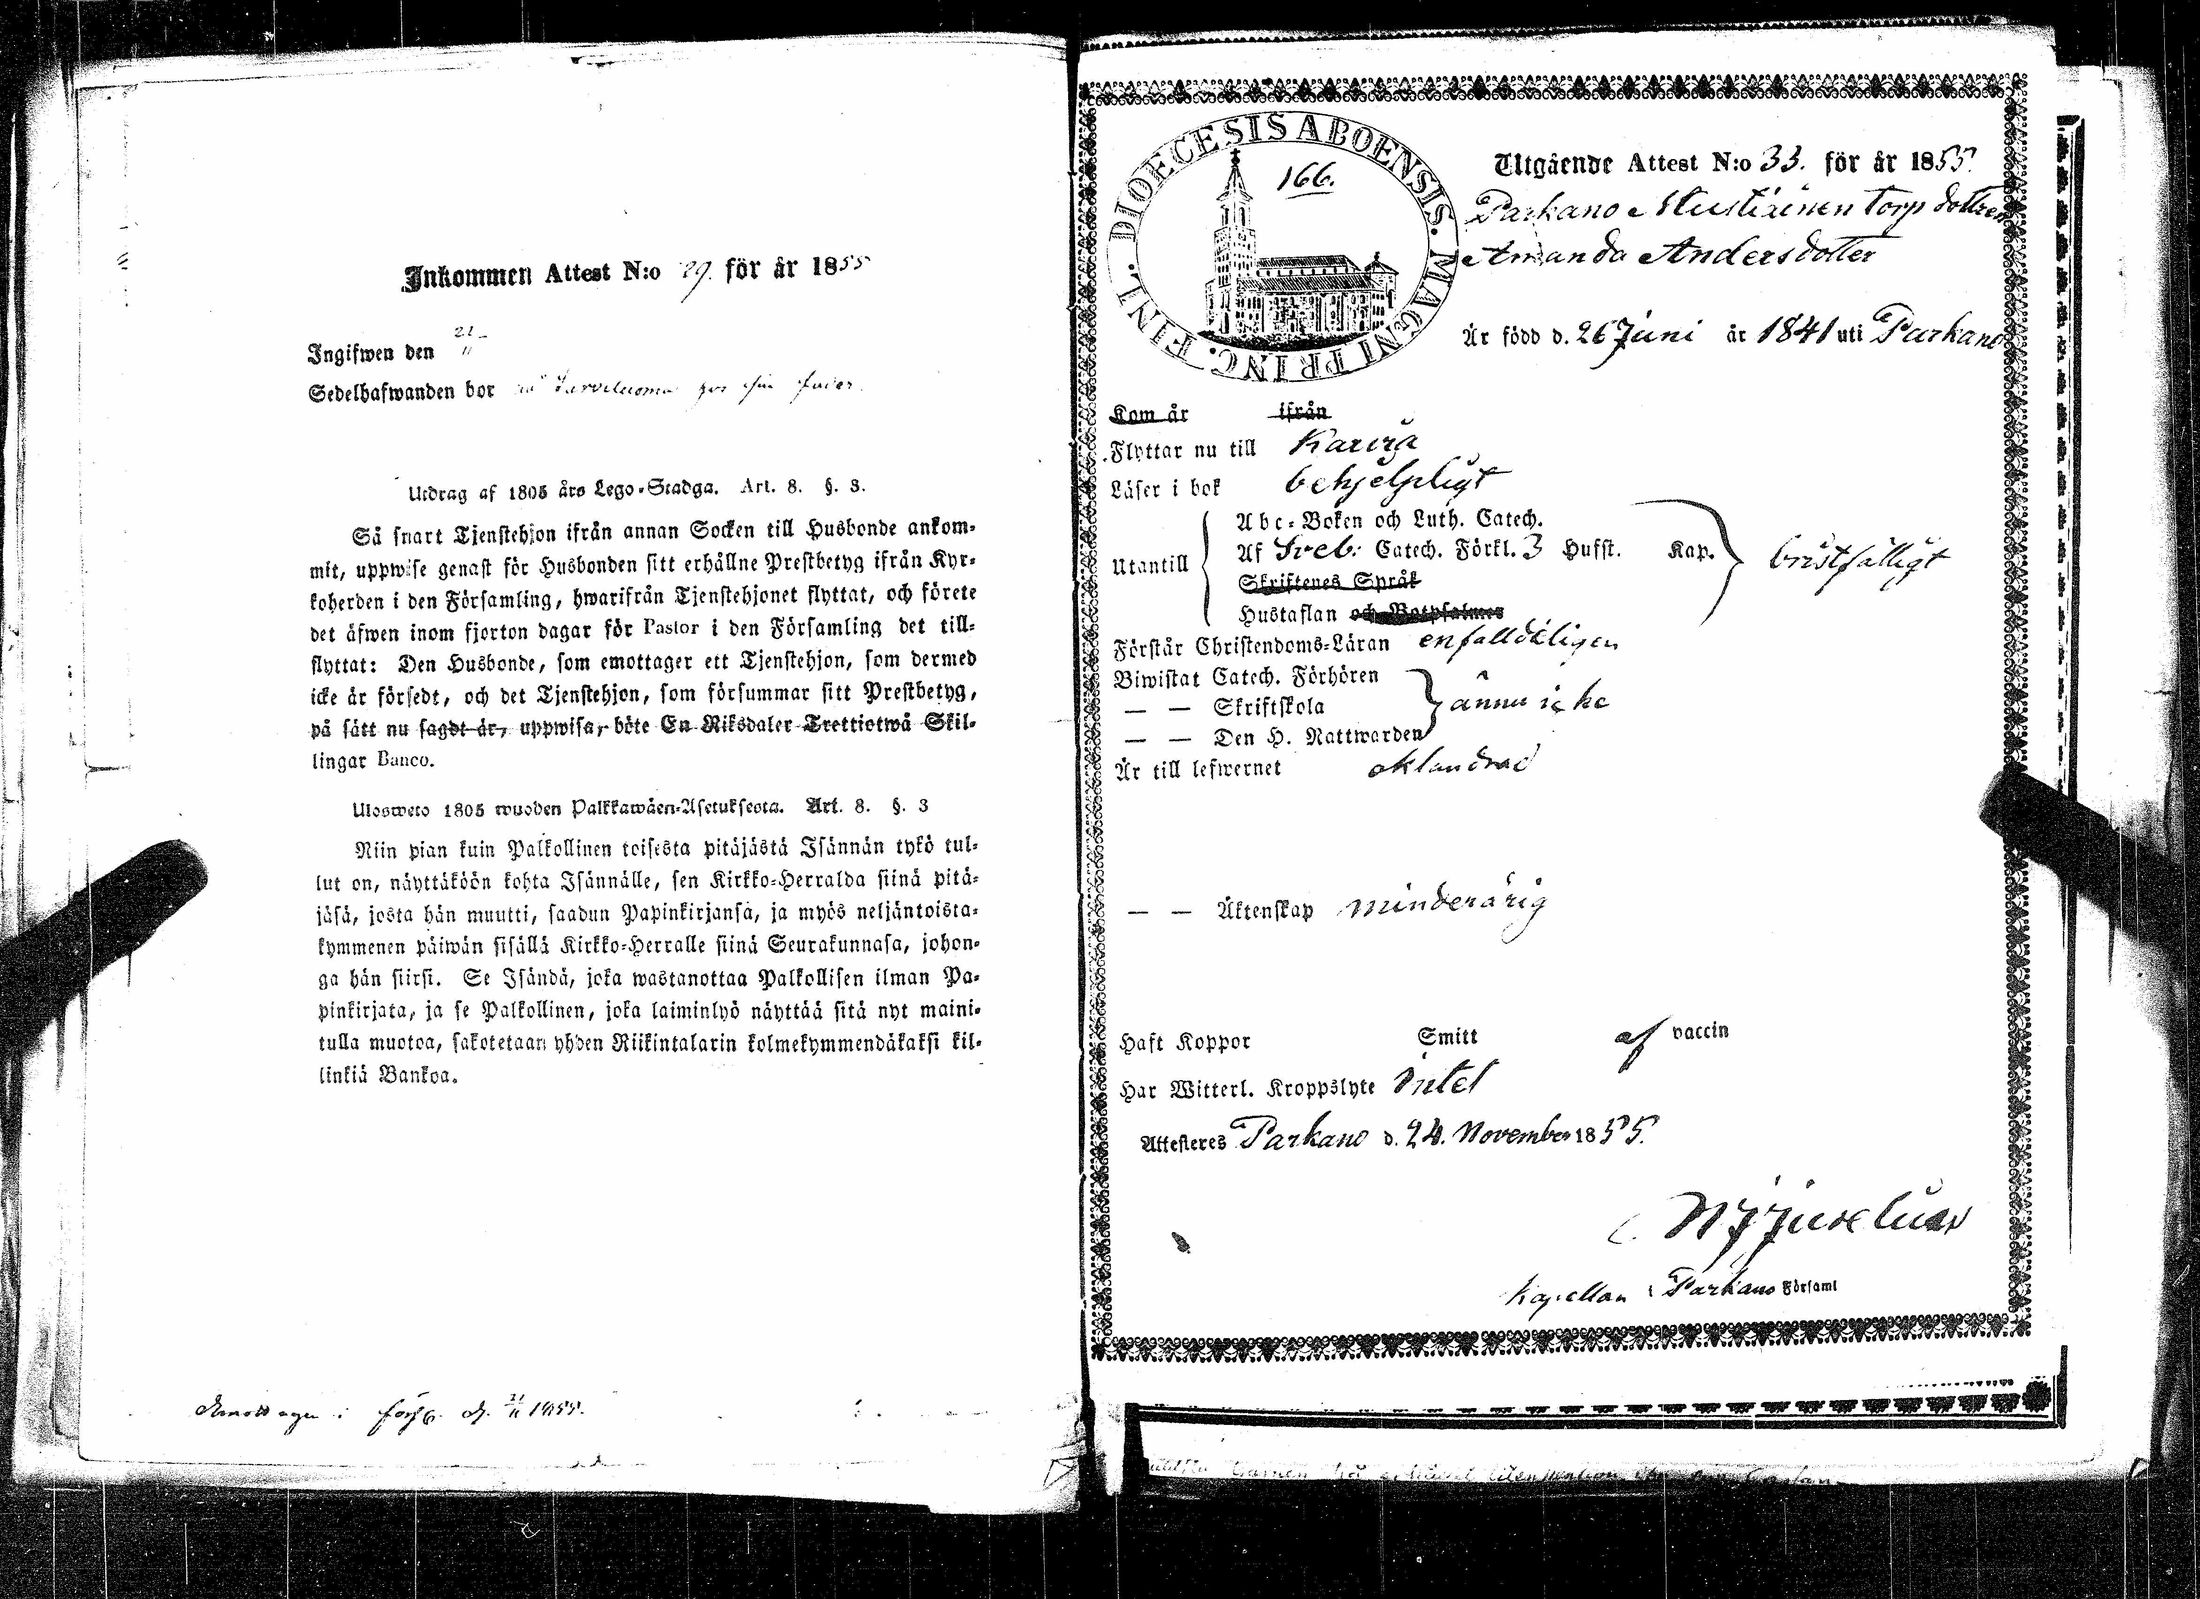 Inkommen Attest N:o 29. för år 1855
Ingifwen den 21/11
Sedelhafwanden bor på Sarveluoma hos sin fader.
Utdrag af 1805 års Lego-Stadga. Art. 8. §. 3.
Så snart Tjenstehjon ifrån annan Socken till Husbonde ankom-
mit, uppwise genast för Husbonden sitt erhållne Prestbetyg ifrån Kyr-
koherden i den Församling, hwarifrån Tjenstehjonet flyttat, och förete
det äfwen inom fjorton dagar för Pastor i den Församling det till-
flyttat: Den Husbonde, som emottager ett Tjenstehjon, som dermed
icke är försedt, och det Tjenstehjon, som försummar sitt Prestbetyg,
på sätt nu sagdt är, uppwisa, böte En Riksdaler Trettiotwå Skil-
lingar Banco.
Ulosweto 1805 wuoden Palkkawäen-Asetuksesta. Art. 8. §. 3
Niin pian kuin Palkollinen toisesta pitäjästä Isännän tykö tul-
lut on, näyttäköön kohta Isännälle, sen Kirkko-Herralda siinä pitä-
jäsä, josta hän muutti, saadun Papinkirjansa, ja myös neljäntoista-
kymmenen päiwän sisällä Kirkko-Herralle siinä Seurakunnasa, johon-
ga hän siirsi. Se Isändä, joka wastanottaa Palkollisen ilman Pa-
pinkirjata, ja se Palkollinen, joka laiminlyö näyttää sitä nyt maini-
tulla muotoa, sakotetaan yhden Riikintalarin kolmekymmendäkaksi kil-
linkiä Bankoa.
Emottagen i förs. d. 21/11 1855.
DIOECESIS ABOENSIS. MAGNI PRINC. FINL.
166.
Utgående Attest N:o 33. för år 1855.
Parkano Mustiäinen Torp dottren
Amanda Andersdotter
Är född d. 26 Juni år 1841 uti Parkano
Kom år ifrån
Flyttar nu till Karvia
Läser i bok behjelpligt
Utantill
Abc-Boken och Luth. Catech.
Af Sveb: Catech. Förkl. 3 Hufst. Kap.
bristfälligt
Skriftenes Språk
Hustaflan och Botpsalmer
Förstår Christendoms-Läran enfalldeligen
Biwistat Catech. Förhören
— — Skriftskola
ännu icke
— — Den H. Nattwarden
Är till lefwernet oklandrad
— — Äktenskap minderårig
Haft Koppor Smitt af vaccin
Har Witterl. Kroppslyte intet
Attesteres Parkano d. 24. November 1855.
Kapellan i Parkano Församl